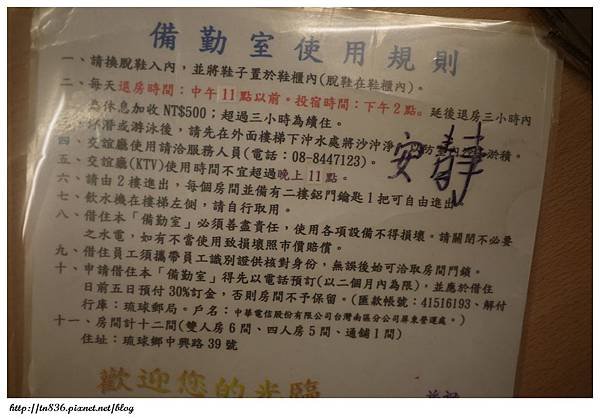 備勤室使用規則
一、請換脫鞋入內，並將鞋子置於鞋櫃內(脫鞋在鞋櫃內)。
二、每天退房時間：中午11點以前。投宿時間：下午2點。延後退房三小時內
為休息加收NT$500；超過三小時為續住。
浮潛或游泳後，請先在外面樓梯下沖水處將沙沖淨，
淤積。
四、交誼廳使用請洽服務人員(電話：08-8447123)。
安靜
五、交誼廳(KTV)使用時間不宜超過晚上11點。
六、請由2樓進出，每個房間並備有二樓鋁門鑰匙1把可自由進出
七、飲水機在樓梯左側，請自行取用。
八、借住本「備勤室」必須善盡責任，使用各項設備不得損壞。請關閉不必要
之水電，如有不當使用致損壞照市價賠償。
九、借住員工須攜帶員工識別證供核對身份，無誤後始可洽取房間門鎖。
十、申請借住本「備勤室」得先以電話預訂(以二個月內為限)，並應於借住
日前五日預付30%訂金，否則房間不予保留。(匯款帳號：41516193、解付
行庫：琉球郵局。戶名：中華電信股份有限公司台灣南區分公司屏東營運處。)
十一、房間計十二間(雙人房6間、四人房5間、通舖1間)
住址：琉球鄉中興路39號
歡迎您的光臨
http://tn836.pixnet.net/blog